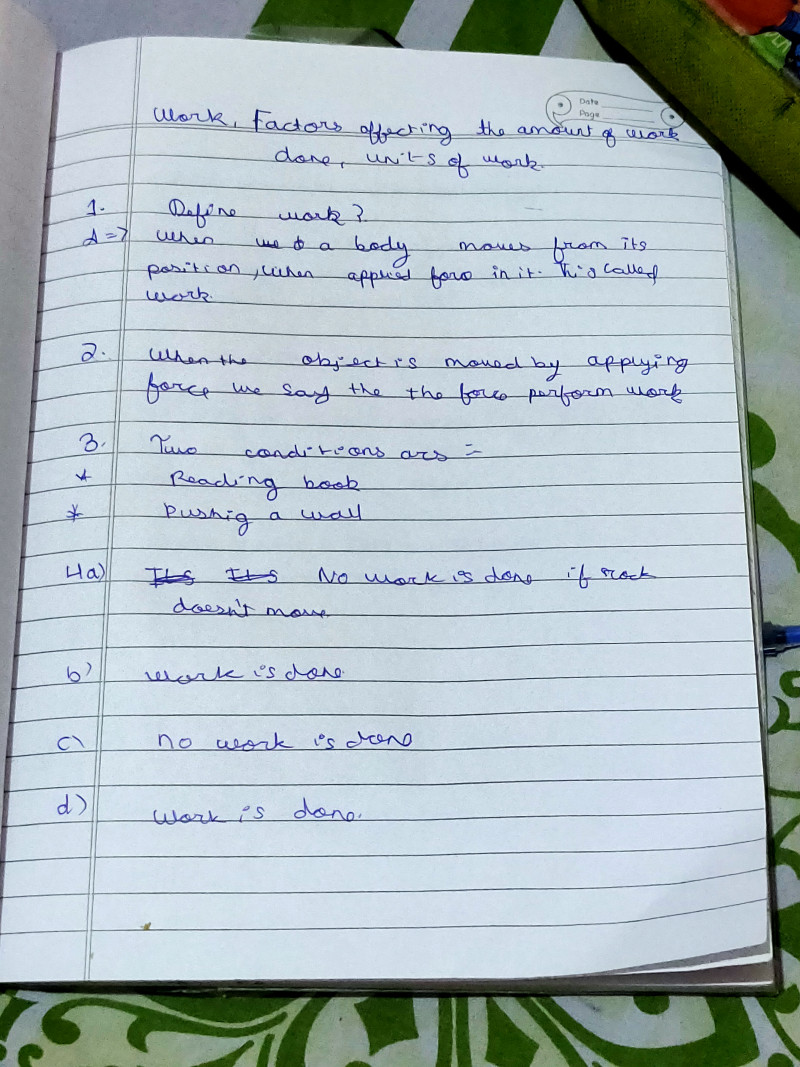 Date
Page
Work, Factors affecting the amount of work
done, units of work.
1. Define work?
A => When a body moves from its
position, when applied in it. called
work.
2. When the object is moved by applying
force we say the the force perform work
3. Two conditions ars =
* Reading book
* Pushig a wall
4a) No work is done if rock
doesn't move
b) work is done.
c) no work is done
d) work is done.